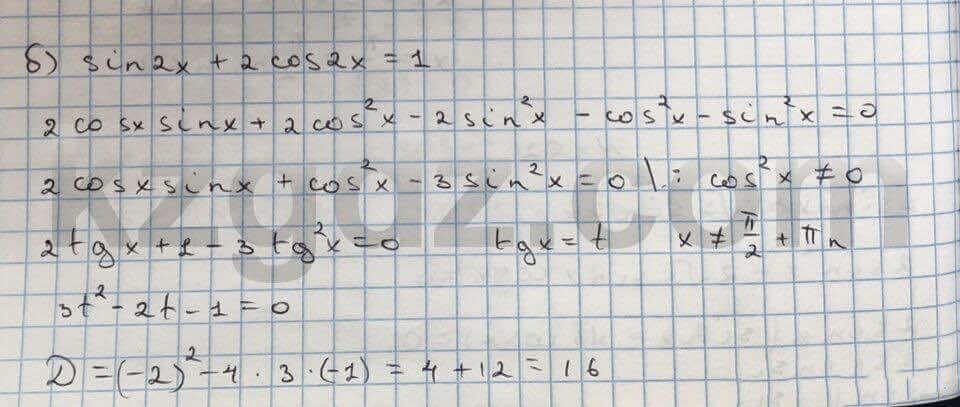 б) sin2x + 2 cos2x = 1
2 cosx sinx + 2 cos²x - 2 sin²x - cos²x - sin²x = 0
2 cosx sinx + cos²x - 3 sin²x = 0 | : cos²x ≠ 0
2 tgx + 1 - 3 tg²x = 0 tgx = t x ≠ π/2 + πn
3t² - 2t - 1 = 0
D = (-2)² - 4 · 3 · (-1) = 4 + 12 = 16
kzgdz.com